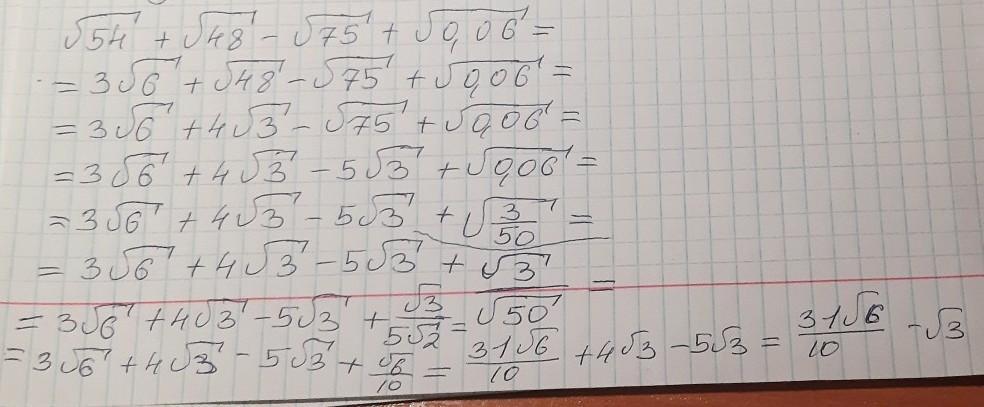 √54 + √48 − √75 + √0,06 =
= 3√6 + √48 − √75 + √0,06 =
= 3√6 + 4√3 − √75 + √0,06 =
= 3√6 + 4√3 − 5√3 + √0,06 =
= 3√6 + 4√3 − 5√3 + √(3/50) =
= 3√6 + 4√3 − 5√3 + √3/√50 =
= 3√6 + 4√3 − 5√3 + √3/5√2 =
= 3√6 + 4√3 − 5√3 + √6/10 = 31√6/10 + 4√3 − 5√3 = 31√6/10 − √3